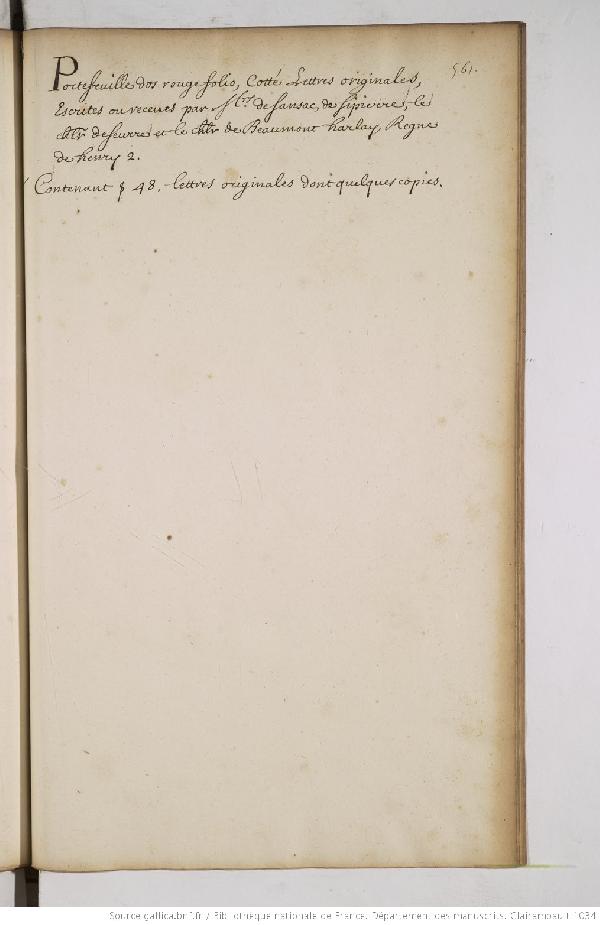 561.
Portefeuille dos rouge folio, Cotté Lettres originales,
Escrites ou receues par Srs de Sansac, de Sipierre, le
chlr de Seurre et le chlr de Beaumont harlay, Regne
de henry 2.
Contenant 48. lettres originales dont quelques copies.
Source gallica.bnf.fr / Bibliothèque nationale de France. Département des manuscrits. Clairambault 1034